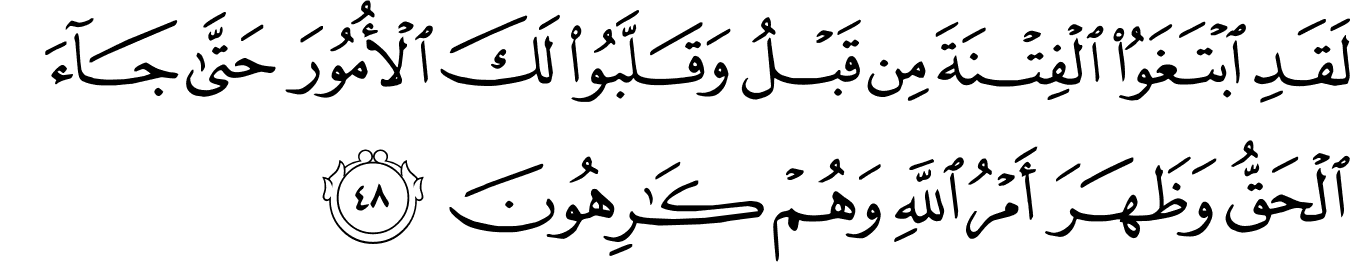 لَقَدِ ٱبۡتَغَوُاْ ٱلۡفِتۡنَةَ مِن قَبۡلُ وَقَلَّبُواْ لَكَ ٱلۡأُمُورَ حَتَّىٰ جَآءَ
ٱلۡحَقُّ وَظَهَرَ أَمۡرُ ٱللَّهِ وَهُمۡ كَٰرِهُونَ ٤٨